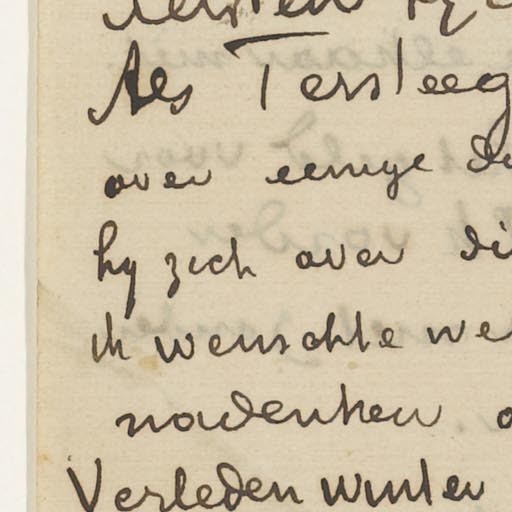 Als Tersteeg
over eenige
hy zich over di
ik wenschte we
nadenken
Verleden winter